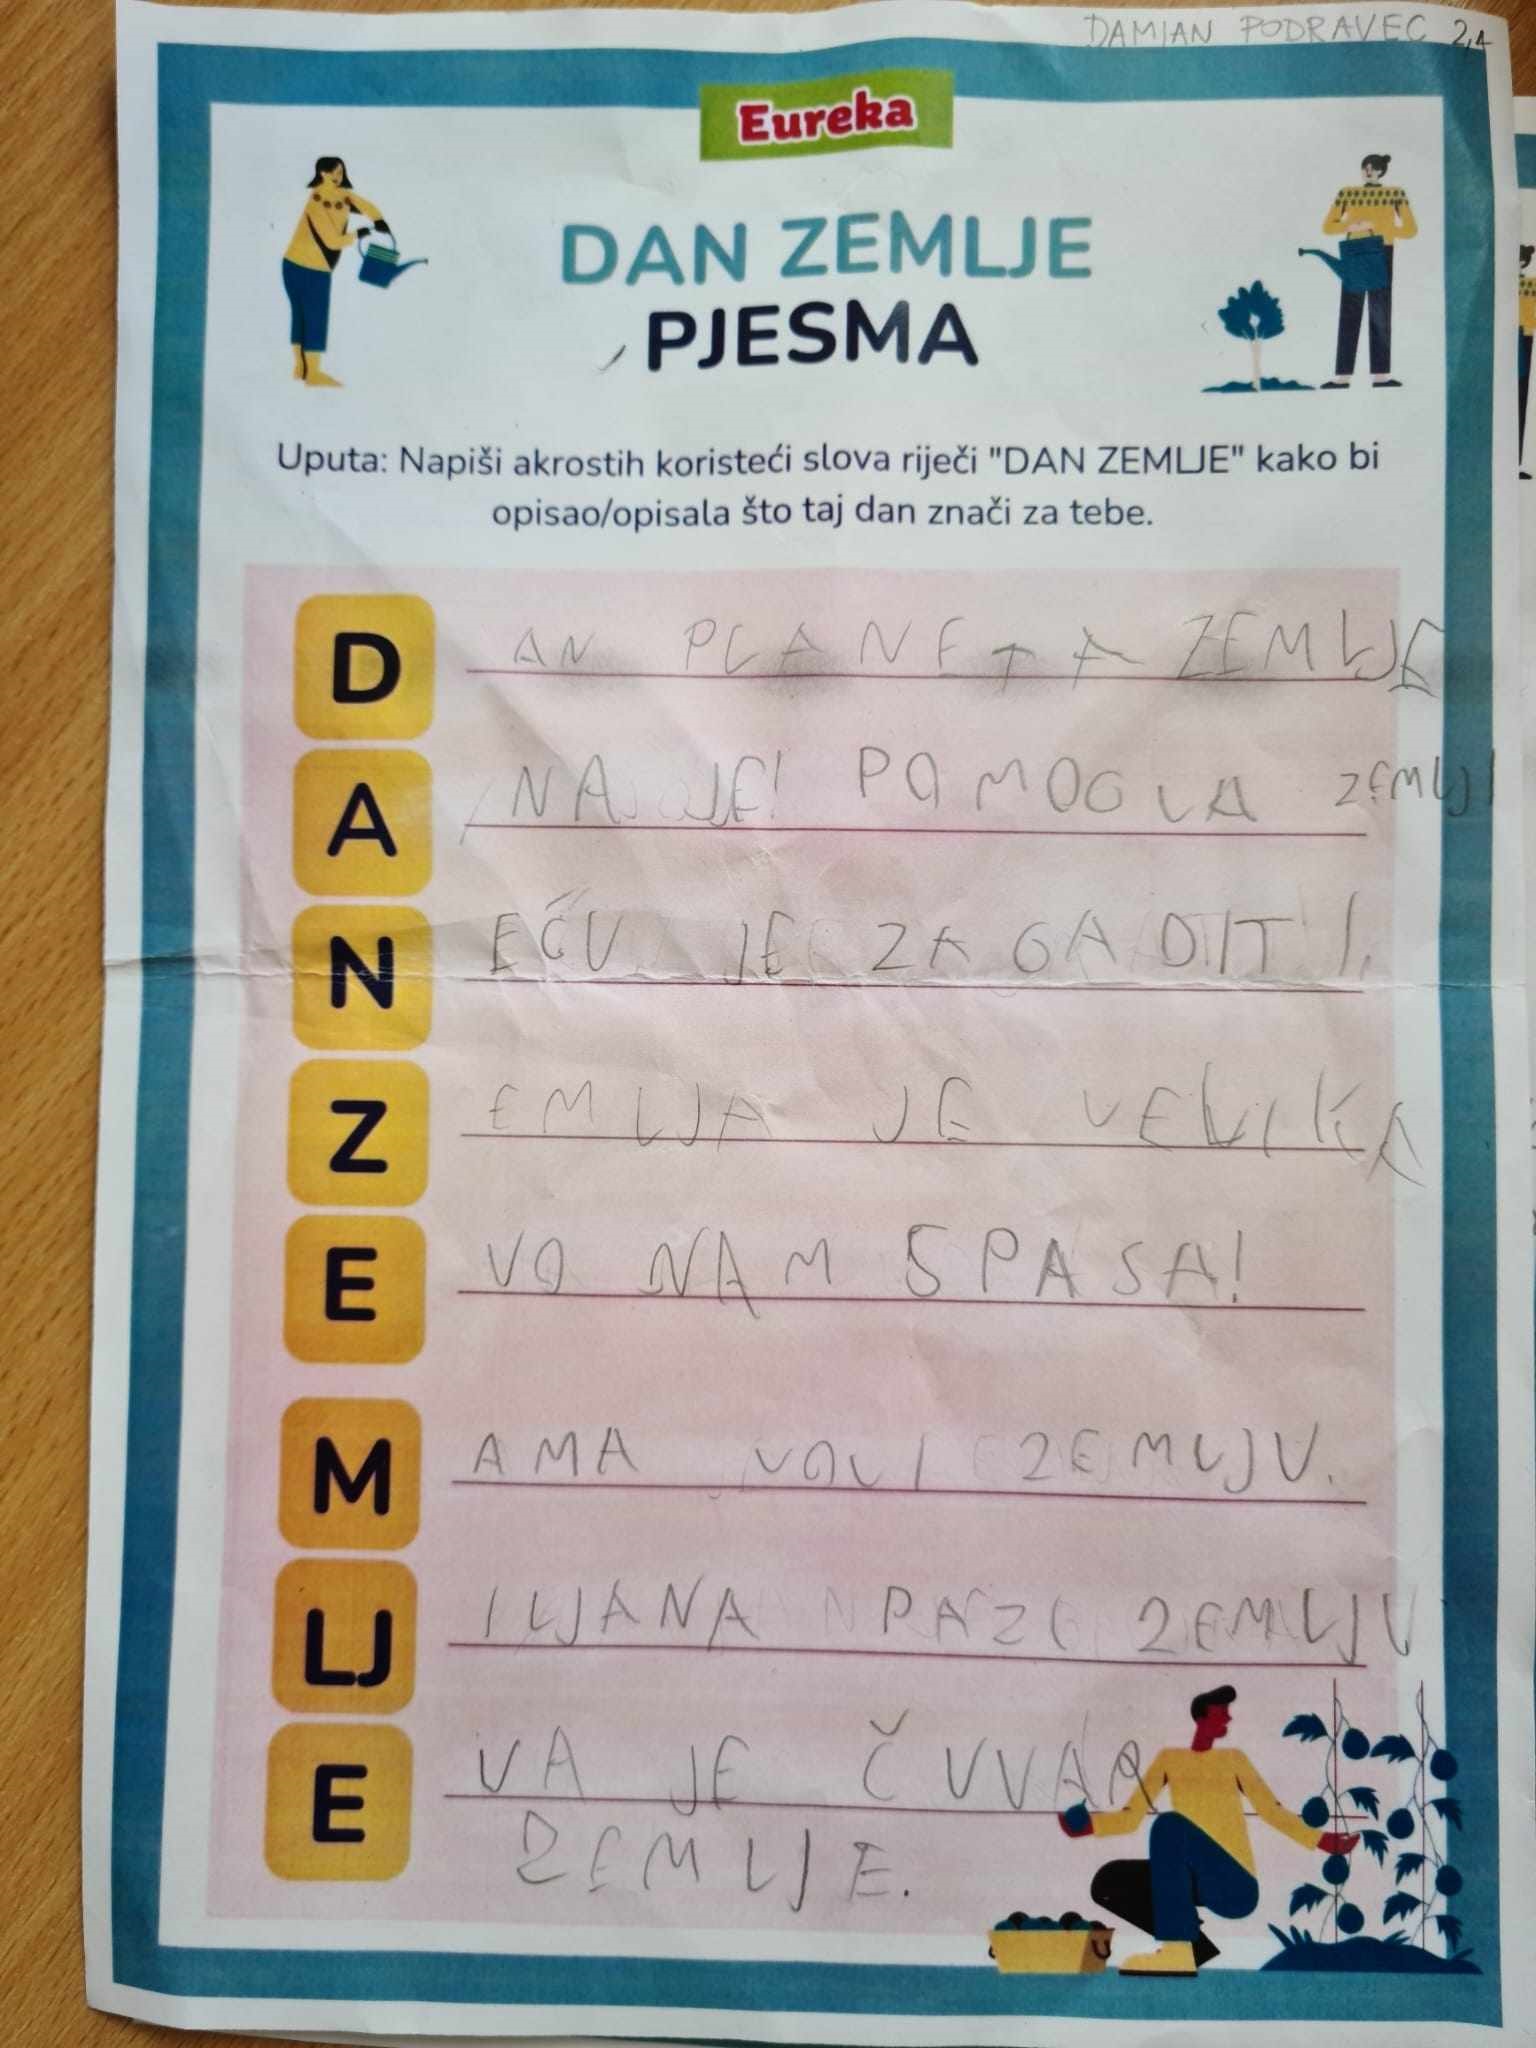 DAMJAN PODRAVEC 2,1
Eureka
DAN ZEMLJE
PJESMA
Uputa: Napiši akrostih koristeći slova riječi "DAN ZEMLJE" kako bi
opisao/opisala što taj dan znači za tebe.
D AN PLANETA ZEMLJE
A NA JE! POMOGLA ZEMLJI
N EĆU JE ZAGADITI.
Z EMLJA JE VELIKA
E VO NAM SPASA!
M AMA VOLI ZEMLJU.
LJ ILJANA PAZI ZEMLJU
E VA JE ČUVAR
ZEMLJE.